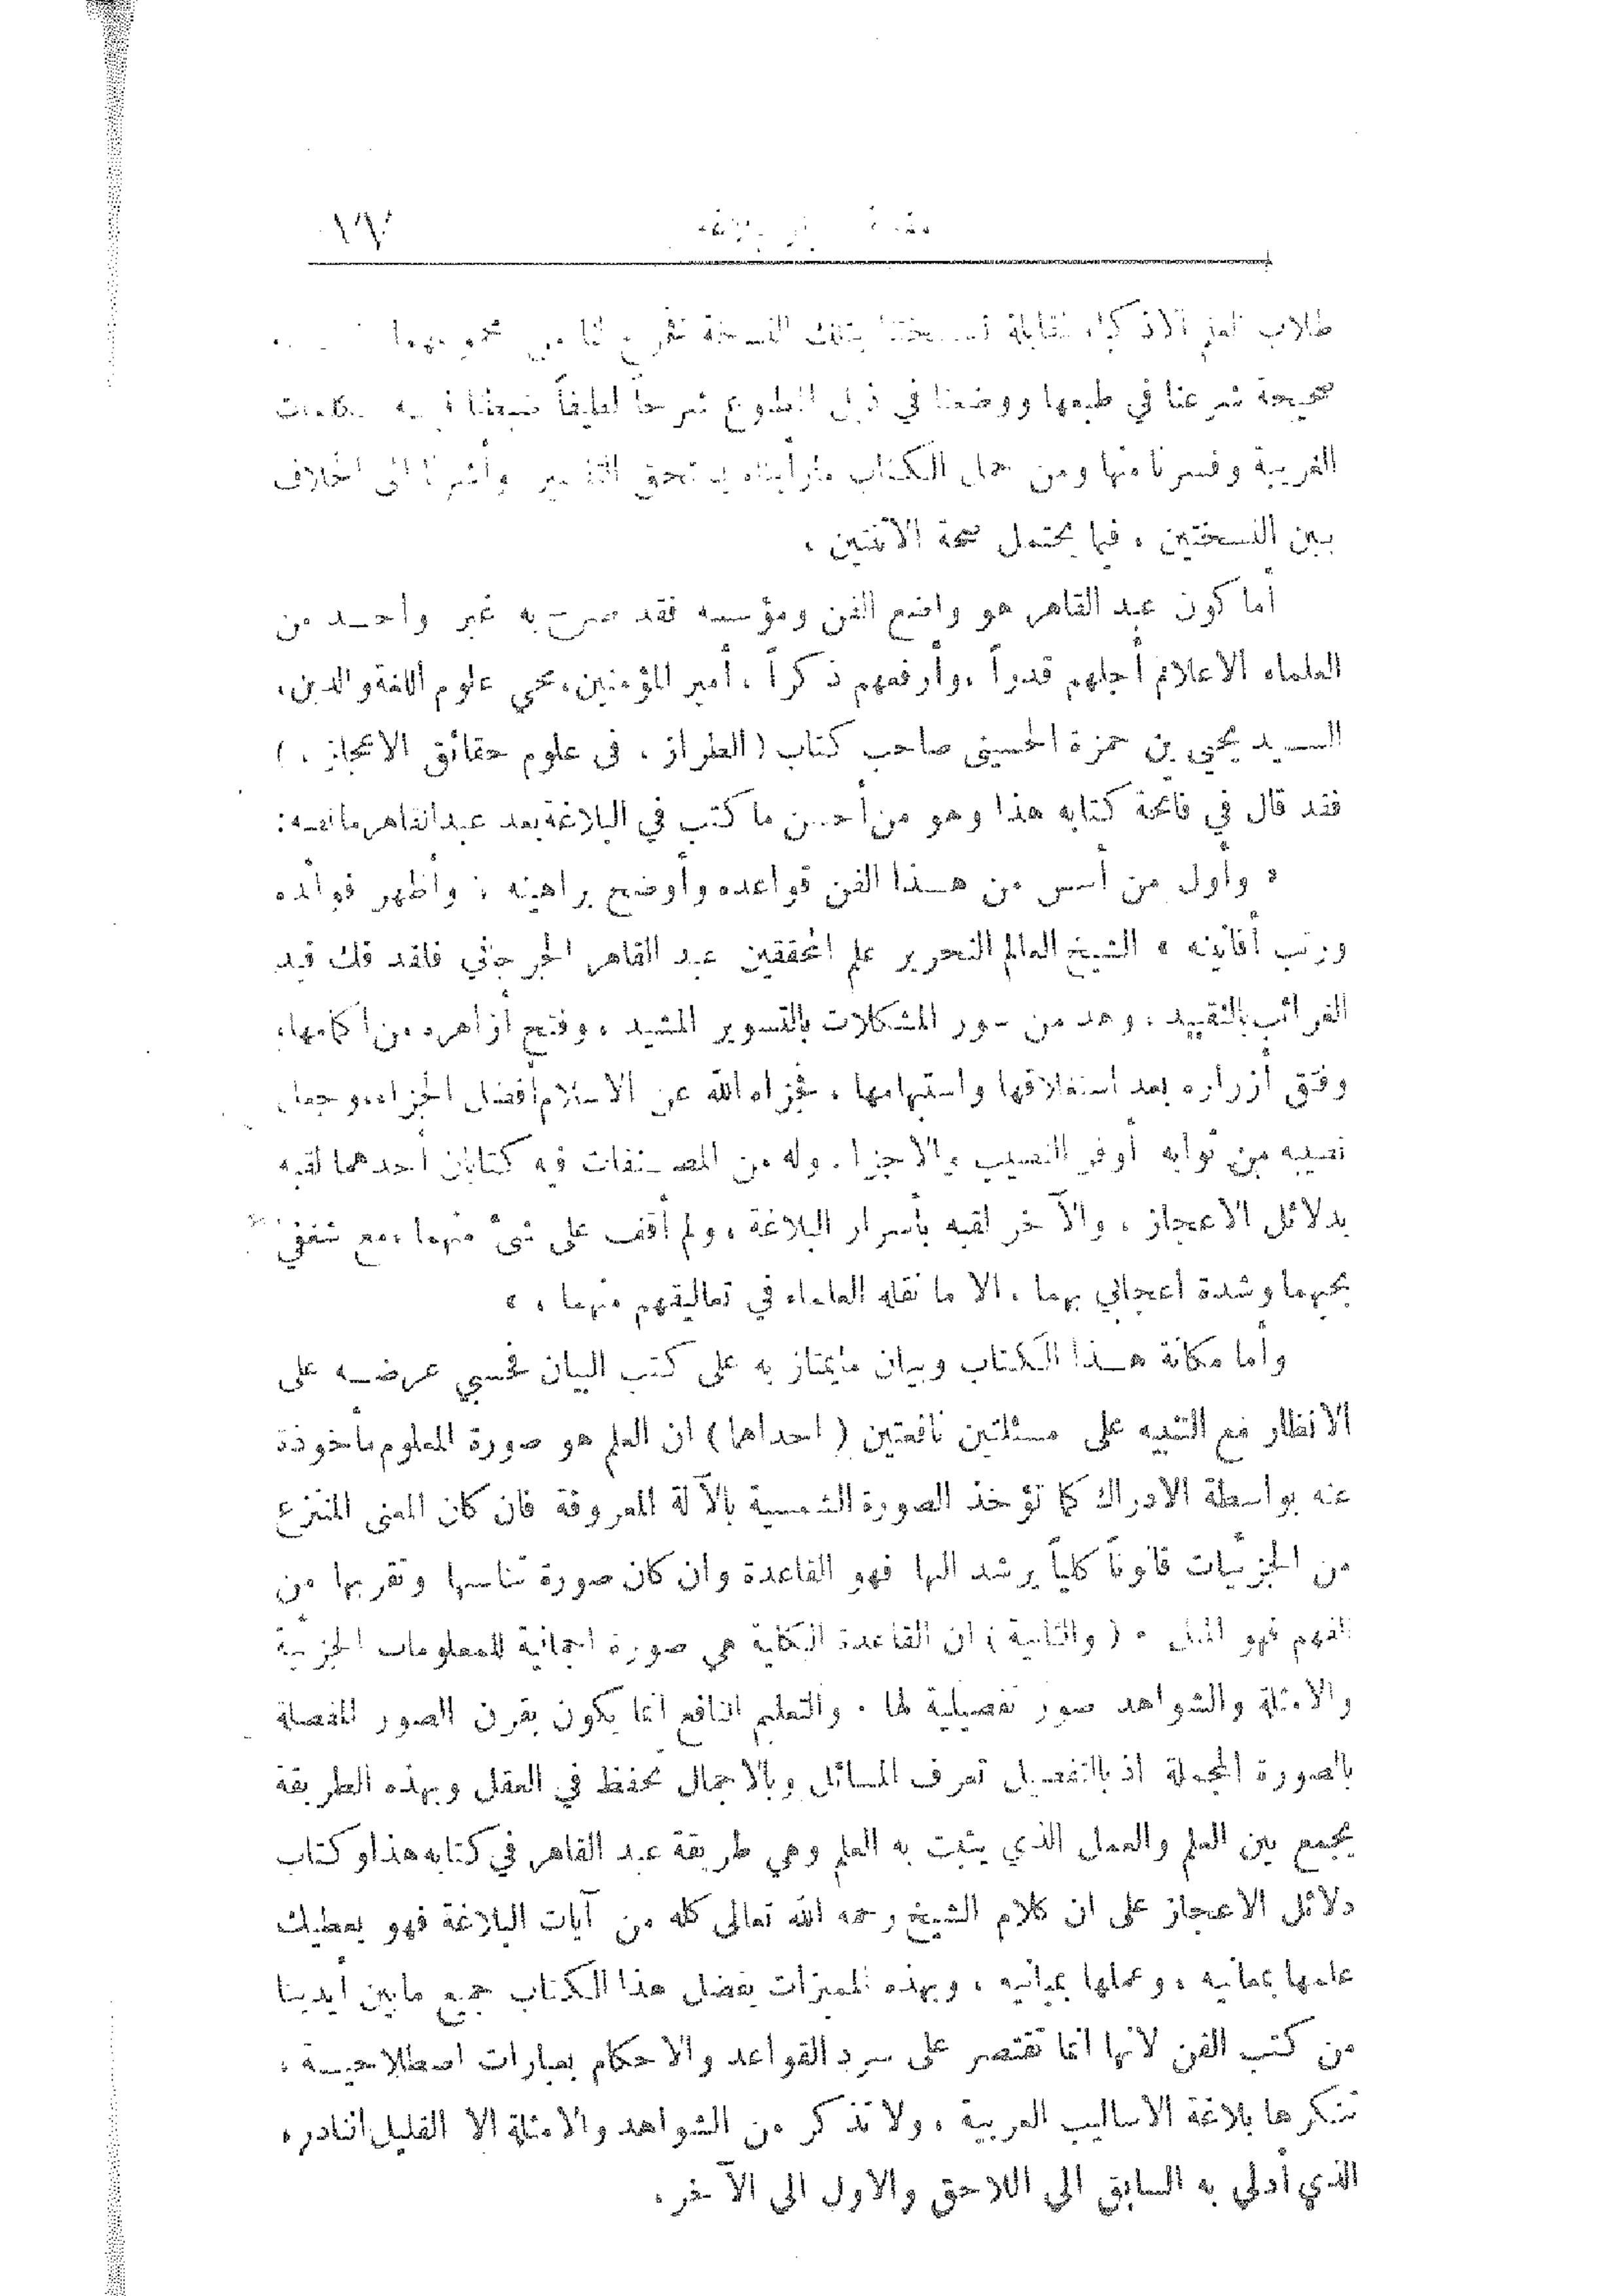 طلاب العلم الاذكياء لمقابلة نسختنا بتلك النسخة فخرج لنا من مجموعهما
صحيحة شرعنا في طبعها ووضعنا في ذيل المطبوع شرحاً لطيفاً ضبطنا فيه الكلمات
الغريبة وفسرناها منها ومن جمل الكتاب مارأيناه يستحق التفسير وأشرنا الى الخلاف
بين النسختين ، فيما يحتمل صحة الاثنتين ،
أما كون عبد القاهر هو واضع الفن ومؤسسه فقد صرح به غير واحد من
العلماء الاعلام أجلهم قدراً ، وأرفعهم ذكراً ، أمير المؤمنين، محي علوم اللغة والدين،
السيد يحيى بن حمزة الحسيني صاحب كتاب ( الطراز ، في علوم حقائق الاعجاز ، )
فقد قال في فاتحة كتابه هذا وهو من أحسن ما كتب في البلاغة بعد عبد القاهر ما نصه :
« وأول من أسس من هذا الفن قواعده وأوضح براهينه ، وأظهر فوائده
ورتب أفانينه ، الشيخ العالم النحرير علم المحققين عبد القاهر الجرجاني فلقد فك قيد
الغرائب بالتقييد ، وهد من سور المشكلات بالتسوير المشيد ، وفتح أزاهره من أكمامها،
وفتق أزراره بعد استغلاقها واستبهامها ، فجزاه الله عن الاسلام أفضل الجزاء، وجعل
نصيبه من ثوابه أوفر النصيب والاجزا . وله من المصنفات فيه كتابان أحدهما لقبه
بدلائل الاعجاز ، والآخر لقبه بأسرار البلاغة ، ولم أقف على شئ منهما ، مع شغفي
بحبهما وشدة اعجابي بهما ، الا ما نقله العلماء في تعاليقهم منهما ، »
وأما مكانة هذا الكتاب وبيان مايمتاز به على كتب البيان فحسبي عرضه على
الانظار مع التنبيه على مسئلتين نافعتين ( احداها ) ان العلم هو صورة المعلوم مأخوذة
عنه بواسطة الادراك كما تؤخذ الصورة الشمسية بالآلة المعروفة فان كان المعنى المنتزع
من الجزئيات قانوناً كلياً يرشد اليها فهو القاعدة وان كان صورة تناسبها وتقربها من
الفهم فهو المثل . ( والثانية ) ان القاعدة الكلية هي صورة اجمالية للمعلومات الجزئية
والامثلة والشواهد صور تفصيلية لها . والتعليم النافع انما يكون بقرن الصور المفصلة
بالصورة المجملة اذ بالتفصيل تعرف المسائل وبالاجمال تحفظ في العقل وبهذه الطريقة
يجمع بين العلم والعمل الذي يثبت به العلم وهي طريقة عبد القاهر في كتابه هذا وكتاب
دلائل الاعجاز على ان كلام الشيخ رحمه الله تعالى كله من آيات البلاغة فهو يعطيك
علمها بمعانيه ، وعملها بمبانيه ، وبهذه المميزات يفضل هذا الكتاب جميع مابين أيدينا
من كتب الفن لانها انما تقتصر على سرد القواعد والاحكام بعبارات اصطلاحية ،
تنكرها بلاغة الاساليب العربية ، ولا تذكر من الشواهد والامثلة الا القليل النادر ،
الذي أدلى به السابق الى اللاحق والاول الى الآخر ،